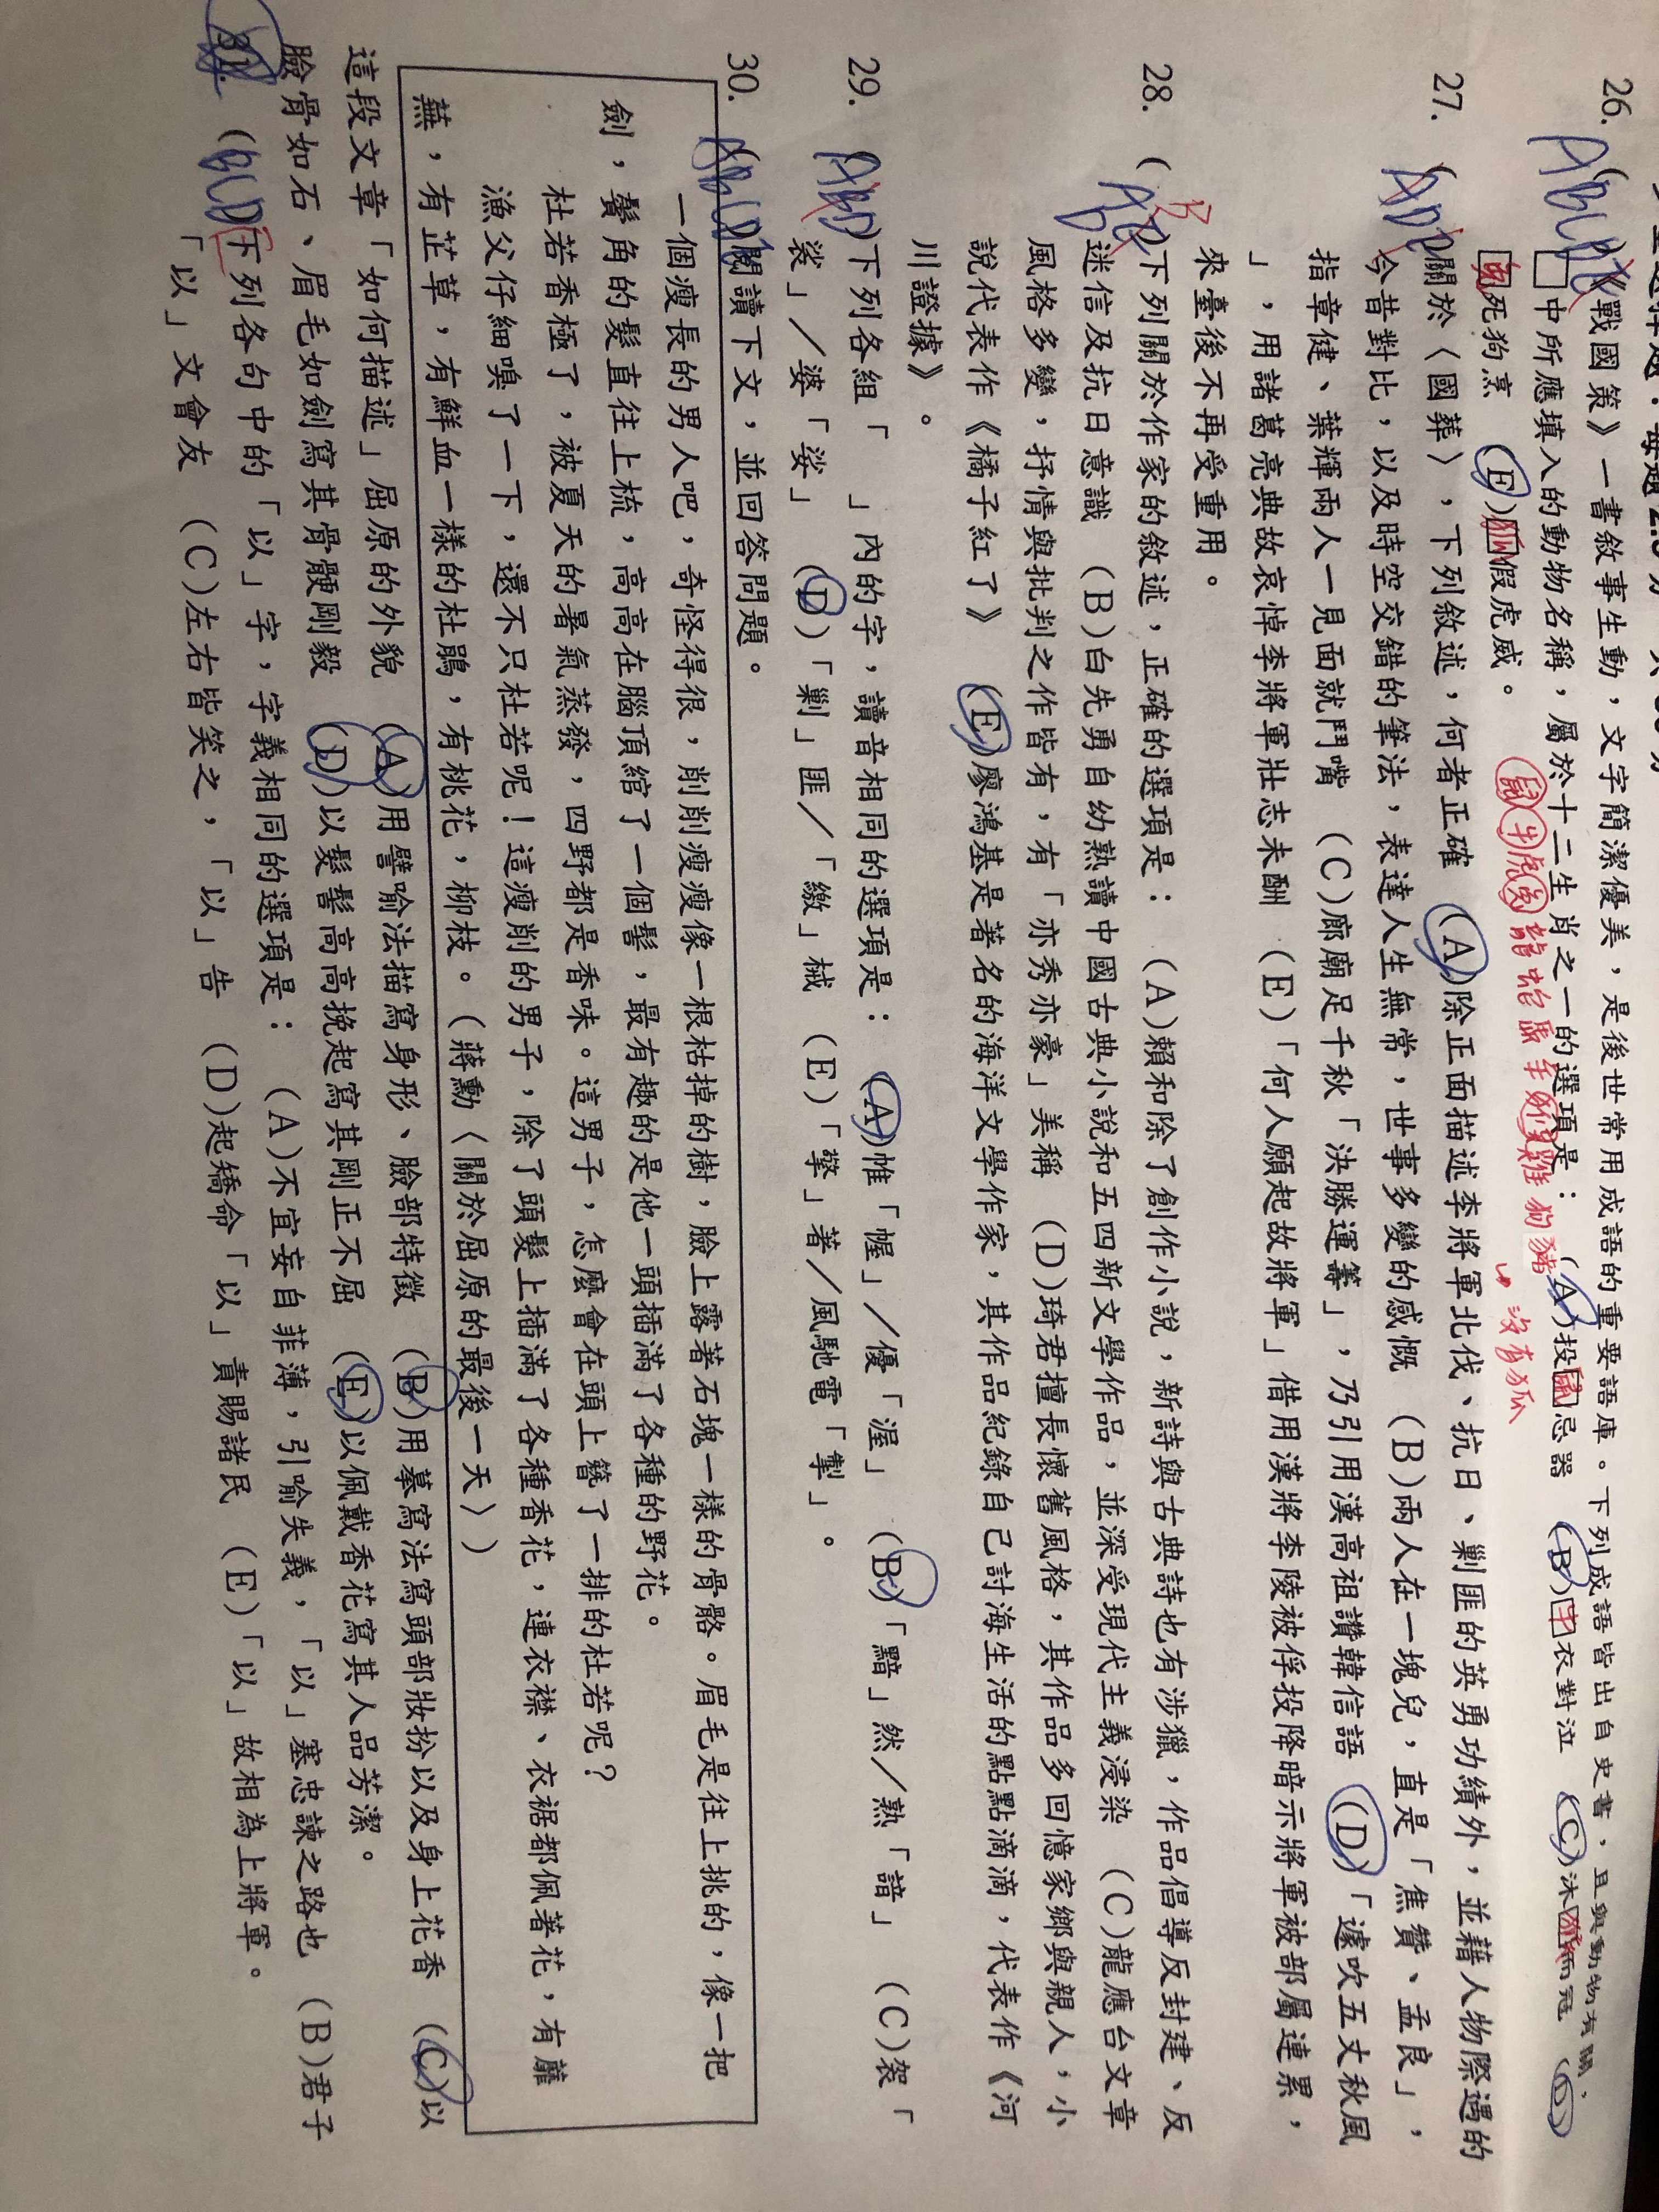 26. (ABCD)《戰國策》一書敘事生動，文字簡潔優美，是後世常用成語的重要語庫。下列成語皆出自史書，且與動物有關，
□中所應填入的動物名稱，屬於十二生肖之一的選項是： (A)投鼠忌器 (B)牛衣對泣 (C)沐猴而冠 (D)
兔死狗烹 (E)狐假虎威。
鼠牛虎兔龍蛇馬羊猴雞狗豬
↳ 沒有狐
27. (AD)關於〈國葬〉，下列敘述，何者正確 (A)除正面描述李將軍北伐、抗日、剿匪的英勇功績外，並藉人物際遇的
今昔對比，以及時空交錯的筆法，表達人生無常，世事多變的感慨 (B)兩人在一塊兒，直是「焦贊、孟良」，
指章健、葉輝兩人一見面就鬥嘴 (C)廊廟足千秋「決勝運籌」，乃引用漢高祖讚韓信語 (D)「遽吹五丈秋風
」，用諸葛亮典故哀悼李將軍壯志未酬 (E)「何人願起故將軍」借用漢將李陵被俘投降暗示將軍被部屬連累，
來臺後不再受重用。
28. ( )下列關於作家的敘述，正確的選項是： (A)賴和除了創作小說，新詩與古典詩也有涉獵，作品倡導反封建、反
迷信及抗日意識 (B)白先勇自幼熟讀中國古典小說和五四新文學作品，並深受現代主義浸染 (C)龍應台文章
風格多變，抒情與批判之作皆有，有「亦秀亦豪」美稱 (D)琦君擅長懷舊風格，其作品多回憶家鄉與親人，小
說代表作《橘子紅了》 (E)廖鴻基是著名的海洋文學作家，其作品紀錄自己討海生活的點點滴滴，代表作《河
川證據》。
29. (ABD)下列各組「 」內的字，讀音相同的選項是： (A)帷「幄」／優「渥」 (B)「黯」然／熟「諳」 (C)袈「
裟」／婆「娑」 (D)「剿」匪／「繳」械 (E)「擎」著／風馳電「掣」。
30. 閱讀下文，並回答問題。
一個瘦長的男人吧，奇怪得很，削削瘦瘦像一根枯掉的樹，臉上露著石塊一樣的骨骼。眉毛是往上挑的，像一把
劍，鬢角的髮直往上梳，高高在腦頂綰了一個髻，最有趣的是他一頭插滿了各種的野花。
杜若香極了，被夏天的暑氣蒸發，四野都是香味。這男子，怎麼會在頭上簪了一排的杜若呢？
漁父仔細嗅了一下，還不只杜若呢！這瘦削的男子，除了頭髮上插滿了各種香花，連衣襟、衣裾都佩著花，有蘼
蕪，有芷草，有鮮血一樣的杜鵑，有桃花，柳枝。（蔣勳〈關於屈原的最後一天〉）
這段文章「如何描述」屈原的外貌 (A)用譬喻法描寫身形、臉部特徵 (B)用摹寫法寫頭部妝扮以及身上花香 (C)以
臉骨如石、眉毛如劍寫其骨骾剛毅 (D)以髮髻高高挽起寫其剛正不屈 (E)以佩戴香花寫其人品芳潔。
31. (BCD)下列各句中的「以」字，字義相同的選項是： (A)不宜妄自菲薄，引喻失義，「以」塞忠諫之路也 (B)君子
「以」文會友 (C)左右皆笑之，「以」告 (D)起矯命「以」責賜諸民 (E)「以」故相為上將軍。